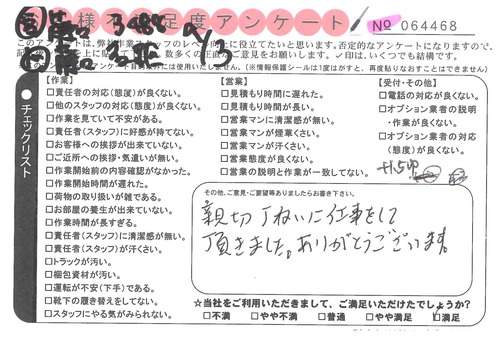 様不満足度アンケート
No 064468
9/13
このアンケートは、弊社作業スタッフのレベル向上に役立てたいと思います。否定的なアンケートになりますので、
ご意見をお願いします。✓印は、いくつでも結構です。
以外には使用いたしません。(※情報保護シールは1度はがすと、再度貼りなおすことはできません)
チェックリスト
【作業】
□責任者の対応(態度)が良くない。
□他のスタッフの対応(態度)が良くない。
□作業を見ていて不安がある。
□責任者(スタッフ)に好感が持てない。
□お客様への挨拶が出来ていない。
□ご近所への挨拶・気遣いが無い。
□作業開始前の内容確認がなかった。
□作業開始時間が遅れた。
□荷物の取り扱いが雑である。
□お部屋の養生が出来ていない。
□作業時間が長すぎる。
□責任者(スタッフ)に清潔感が無い。
□責任者(スタッフ)が汗くさい。
□トラックが汚い。
□梱包資材が汚い。
□運転が不安(下手)である。
□靴下の履き替えをしてない。
□スタッフにやる気がみられない。
【営業】
□見積もり時間に遅れた。
□見積もり時間が長い。
□営業マンに清潔感が無い。
□営業マンが煙草くさい。
□営業マンが汗くさい。
□営業態度が良くない。
□営業の説明と作業が一致してない。
【受付・その他】
□電話の対応が良くない。
□オプション業者の説明
・作業が良くない。
□オプション業者の対応
(態度)が良くない。
その他、ご意見・ご要望等ありましたらお書き下さい。
親切丁ねいに仕事をして
頂きました。ありがとうございます。
☆当社をご利用いただきまして、ご満足いただけたでしょうか?
□不満 □やや不満 □普通 □やや満足 ☑満足